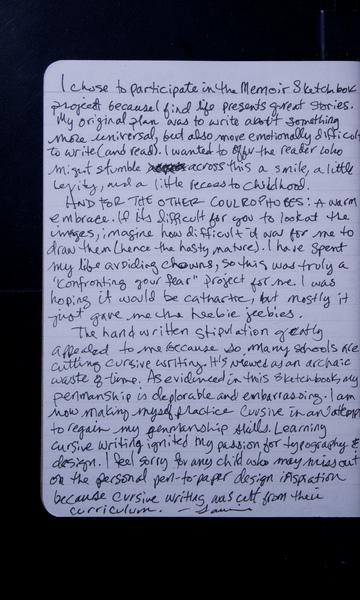 I chose to participate in the Memoir Sketchbook
project because I find life presents great stories.
My original plan was to write about something
more universal, but also more emotionally difficult
to write (and read). I wanted to offer the reader who
might stumble across this a smile, a little
levity, and a little recess to childhood.
AND FOR THE OTHER COULROPHOBES: A warm
embrace. If it's difficult for you to look at the
images, imagine how difficult it was for me to
draw them (hence the hasty nature). I have spent
my life avoiding clowns, so this was truly a
"confronting your fear" project for me. I was
hoping it would be cathartic, but mostly it
just gave me the heebie jeebies.
The hand written stipulation greatly
appealed to me because so many schools are
cutting cursive writing. It's viewed as an archaic
waste of time. As evidenced in this sketchbook, my
penmanship is deplorable and embarrassing. I am
now making myself practice cursive in an attempt
to regain my penmanship skills. Learning
cursive writing ignited my passion for typography &
design. I feel sorry for any child who may miss out
on the personal pen-to-paper design inspiration
because cursive writing was cut from their
curriculum.